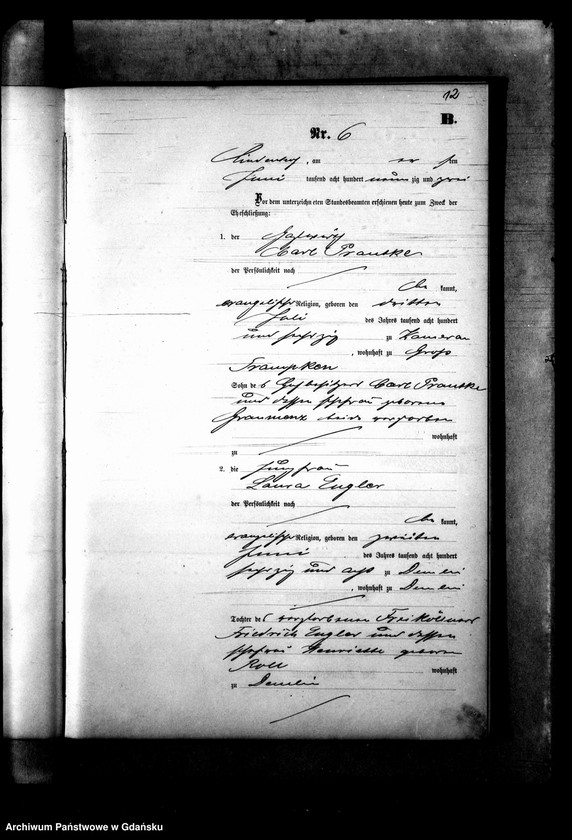 12
B.
Nr. 6
Lindenhof, am er ten
Juni tausend acht hundert neun zig und zwei
Vor dem unterzeichneten Standesbeamten erschienen heute zum Zweck der
Eheschließung:
1. der Hofbesitzer
Carl Prantke
der Persönlichkeit nach
be kannt,
evangelischer Religion, geboren den dritten
Juli des Jahres tausend acht hundert
und sechzig zu Kameran
, wohnhaft zu Groß
Trampken
Sohn des Hofbesitzers Carl Prantke
und dessen Ehefrau geborene
beide verstorben
wohnhaft
zu
2. die Jungfrau
Laura Engler
der Persönlichkeit nach
be kannt,
evangelischer Religion, geboren den zweiten
Juni des Jahres tausend acht hundert
sechzig und acht zu Demlin
, wohnhaft zu Demlin
Tochter des verstorbenen Freiköllmers
Friedrich Engler und dessen
Ehefrau Henriette geborene
Roll wohnhaft
zu Demlin
Archiwum Państwowe w Gdańsku